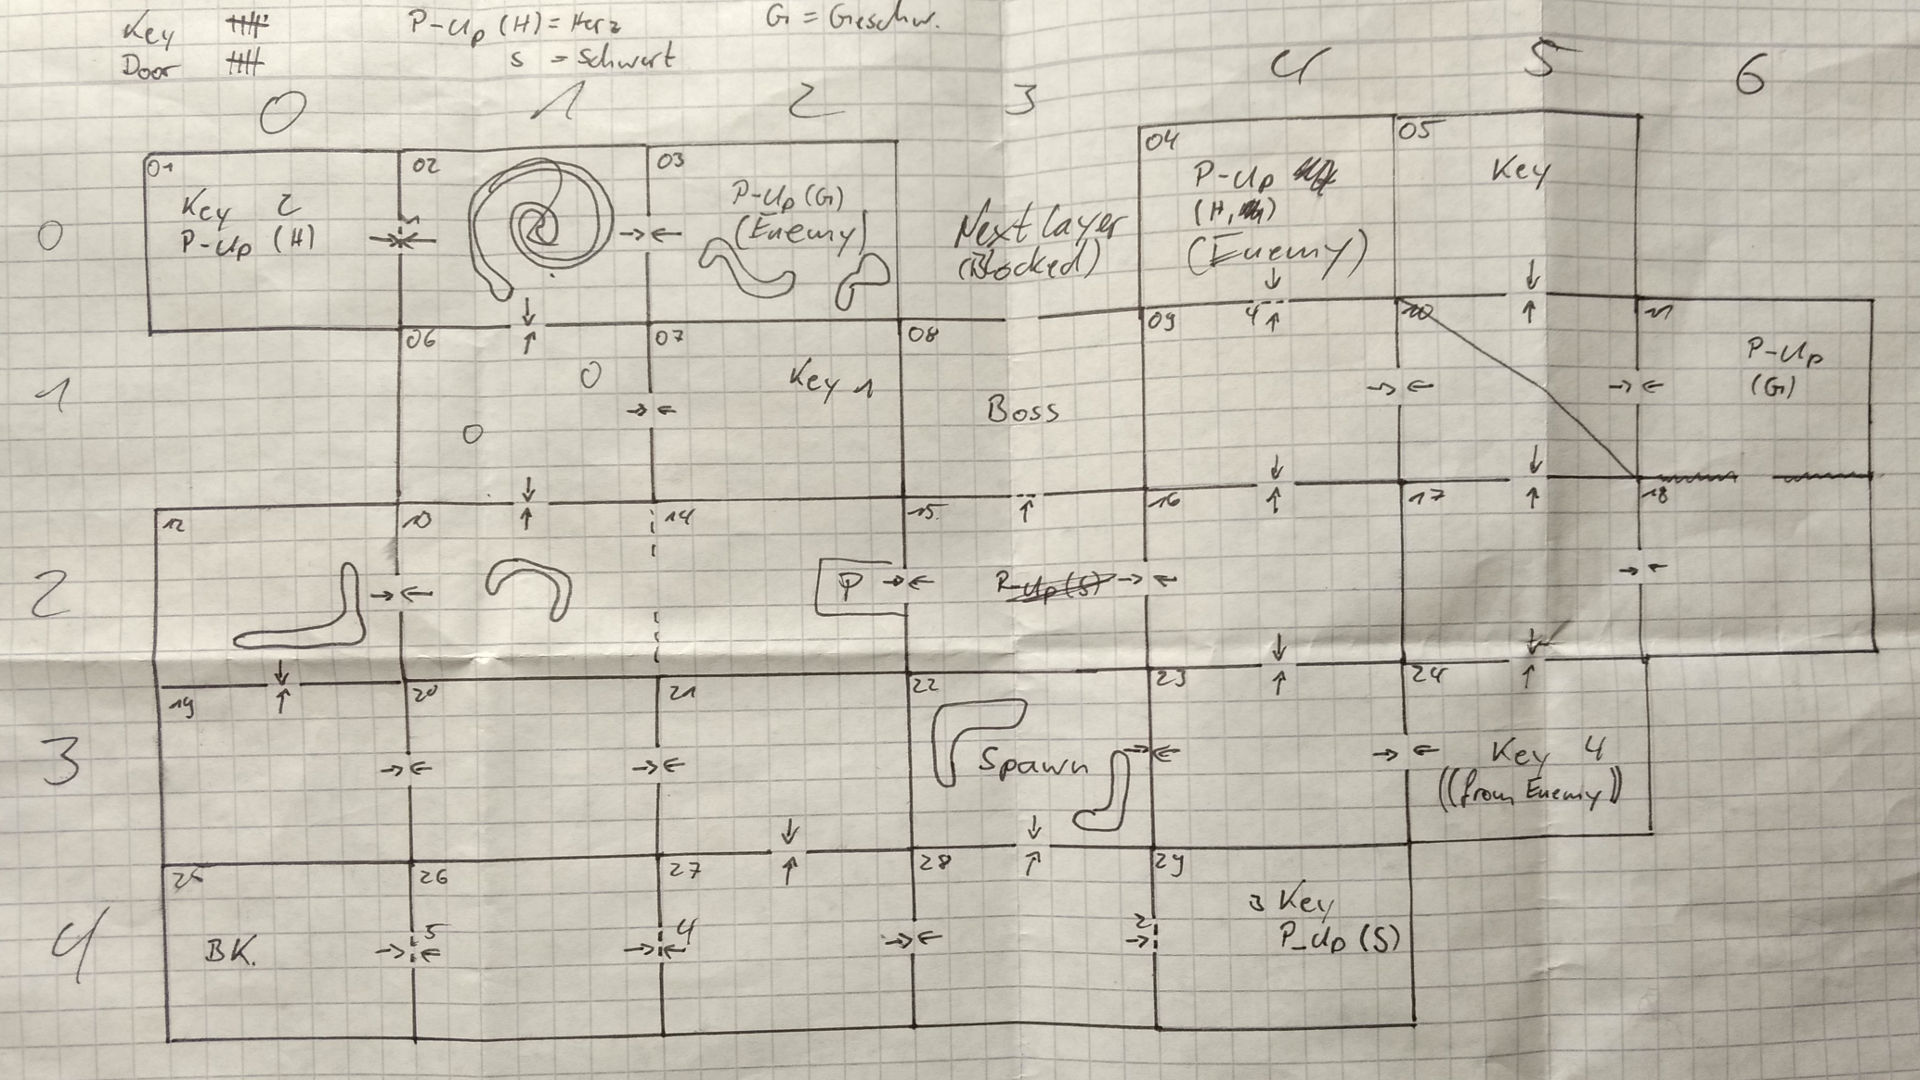 Key 卌 P-Up (H) = Herz G = Geschw.
Door 卌 S = Schwert
0 1 2 3 4 5 6
0
01 02 03 04 05
Key 2
P-Up (H)
P-Up (G)
(Enemy)
Next Layer
(Blocked)
P-Up
(H,
(Enemy)
Key
1
06 07 08 09 4 10 11
Key 1
Boss
P-Up
(G)
2
12 14 15 16 17 18
P
P-Up (S)
3
19 20 21 22 23 24
Spawn
Key 4
((from Enemy))
4
25 26 27 28 29
BK.
5
4
2
3 Key
P-Up (S)